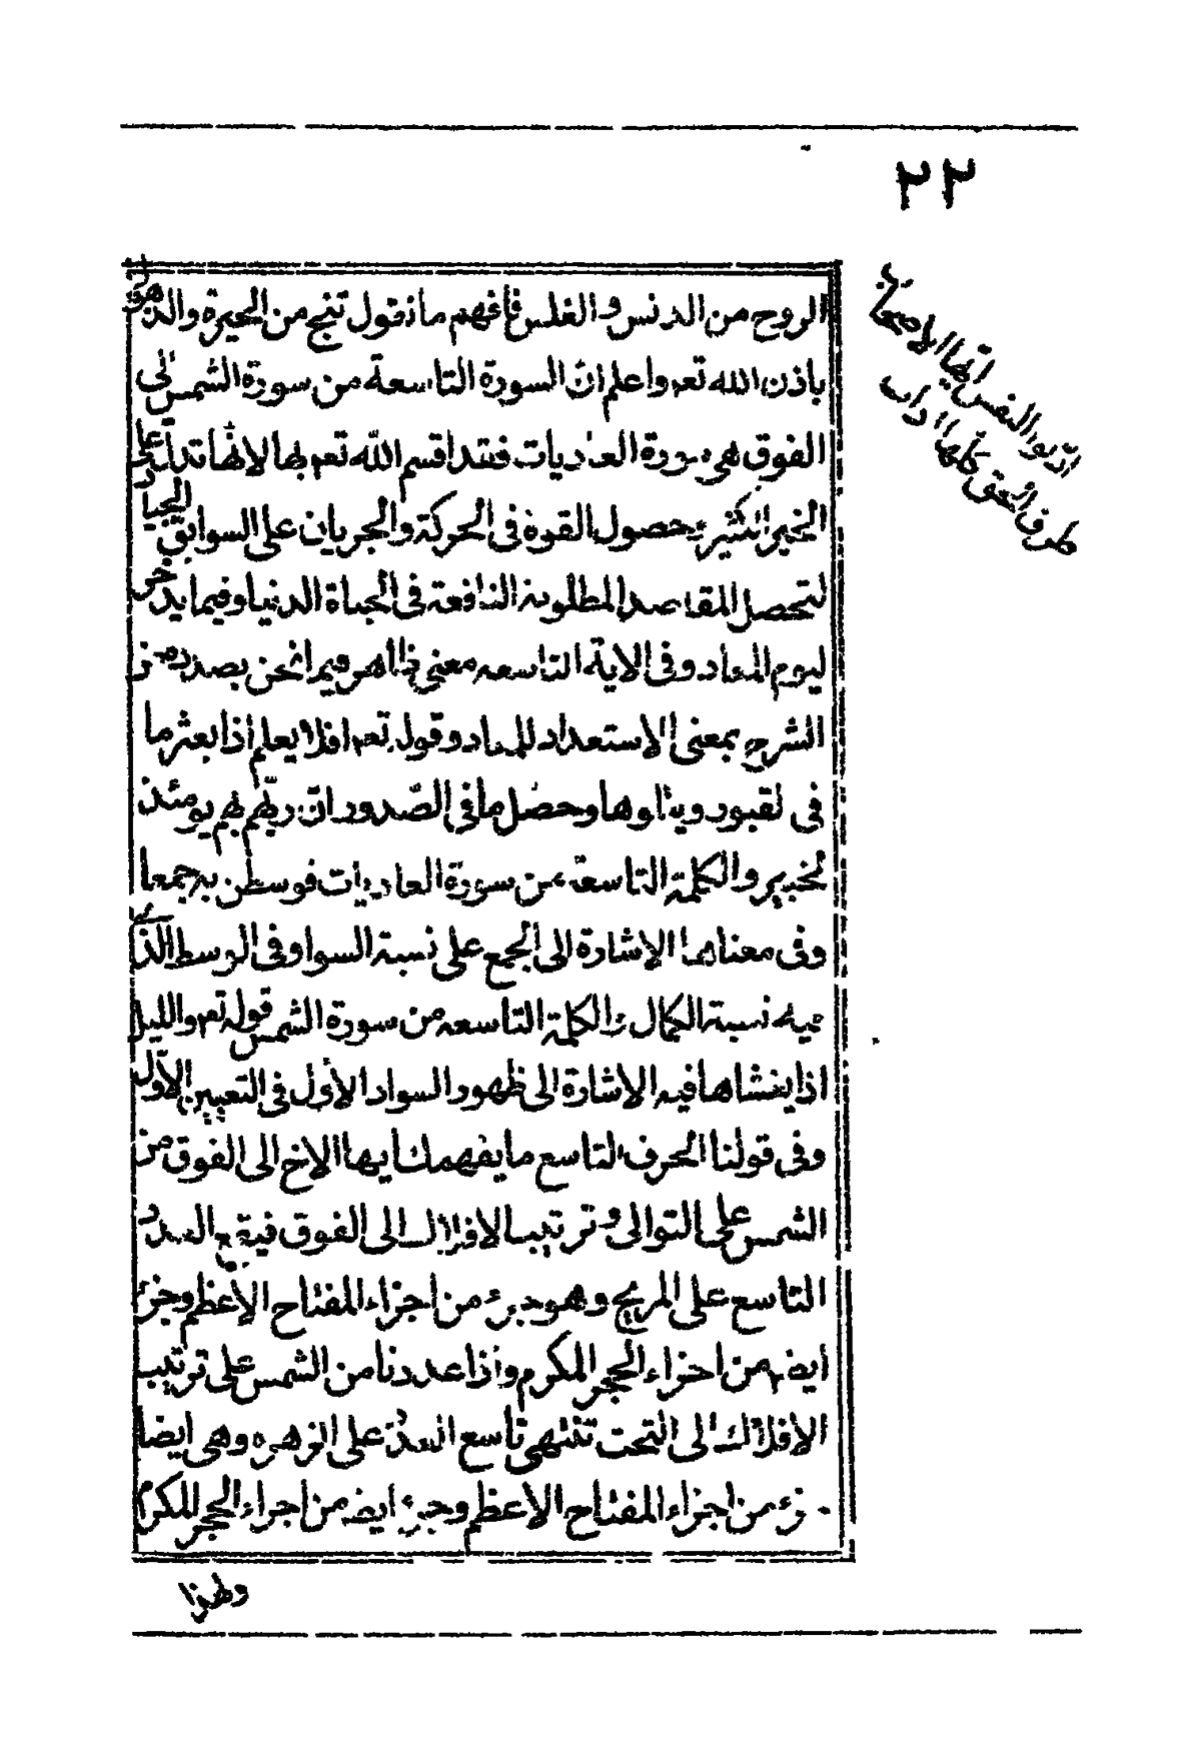 ٢٢
ادّبوا النفس ايّها الاصحاب
طرق العشق كلّها اداب
الروح من الدنس والغلس فافهم ما نقول تنج من الحيرة والذهول
باذن الله تعـ واعلم انّ السورة التاسعة من سورة الشمس الى
الفوق هى سورة العاديات فقد اقسم الله تعـ بها لانّها تدلّ على
الخير الكثير بحصول القوة فى الحركة والجريان على السوابق الجياد
لتحصل المقاصد المطلوبة النافعة فى الحياة الدنيا وفيما يدخر
ليوم المعاد وفى الاية التاسعه معنى ظاهر فيما نحن بصدده من
الشرح بمعنى الاستعداد للمعاد وقول تعـ افلا يعلم اذا بعثر ما
فى لقبور وحصّل ما فى الصّدور انّ ربّهم بهم يومئذ
لخبير والكلمة التاسعة من سورة العاديات فوسطن به جمعا
وفى معناها الاشارة الى الجمع على نسبة السوا وفى الوسط الذى
فيه نسبة الكمال والكلمة التاسعه من سورة الشمس قوله تعـ والليل
اذا يغشاها فيه الاشارة الى ظهور السواد الأول فى التعبير الأول
وفى قولنا الحرف التاسع ما يفهمك ايها الاخ الى الفوق من
الشمس على التوالى وترتيب الافلاك الى الفوق فيقع العدد
التاسع على المريخ وهو جزء من اجزاء المفتاح الأعظم وجزء
ايضـ من اجزاء الحجر المكرم واذا عددنا من الشمس على ترتيب
الافلاك الى التحت تنتهى تاسع العدد على الزهره وهى ايضا
جزء من اجزاء المفتاح الاعظم وجزء ايضـ من اجزاء الحجر المكرم
ولهذا